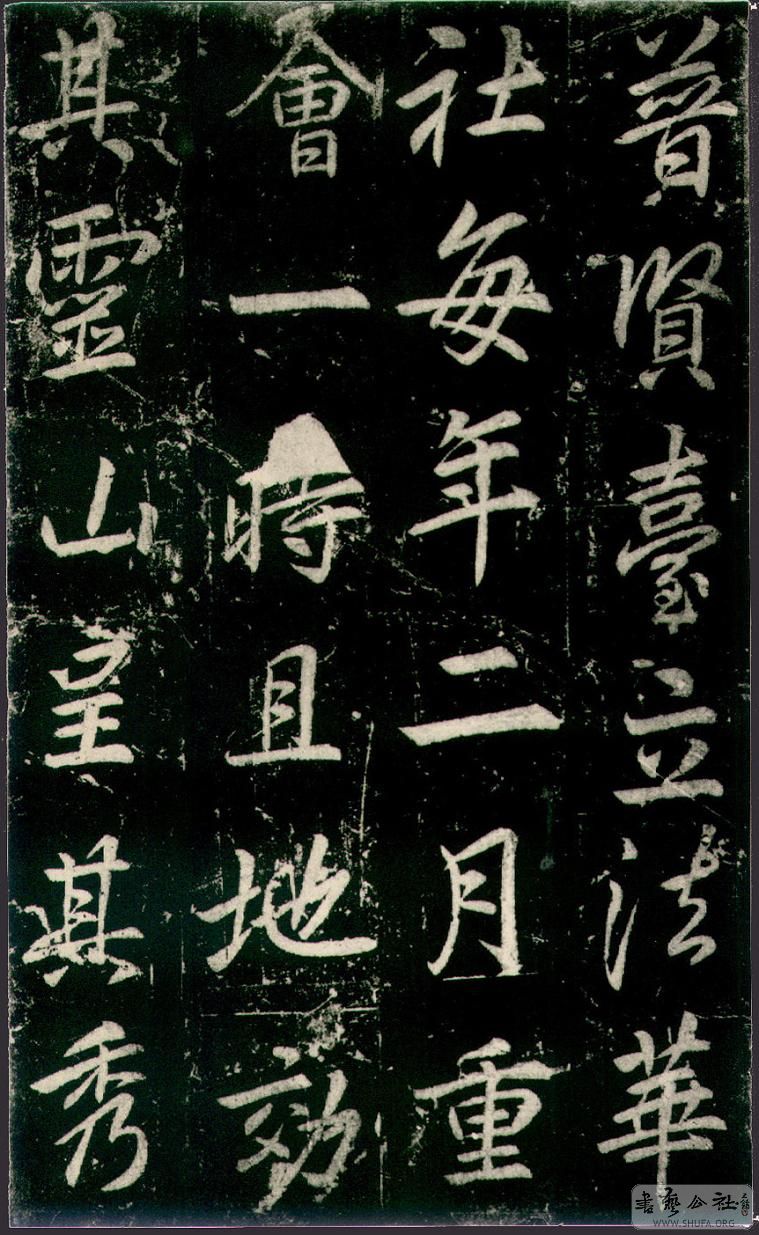 普賢臺立法華
社每年二月重
會一時且地効
其靈山呈其秀
書藝公社
WWW.SHUFA.ORG